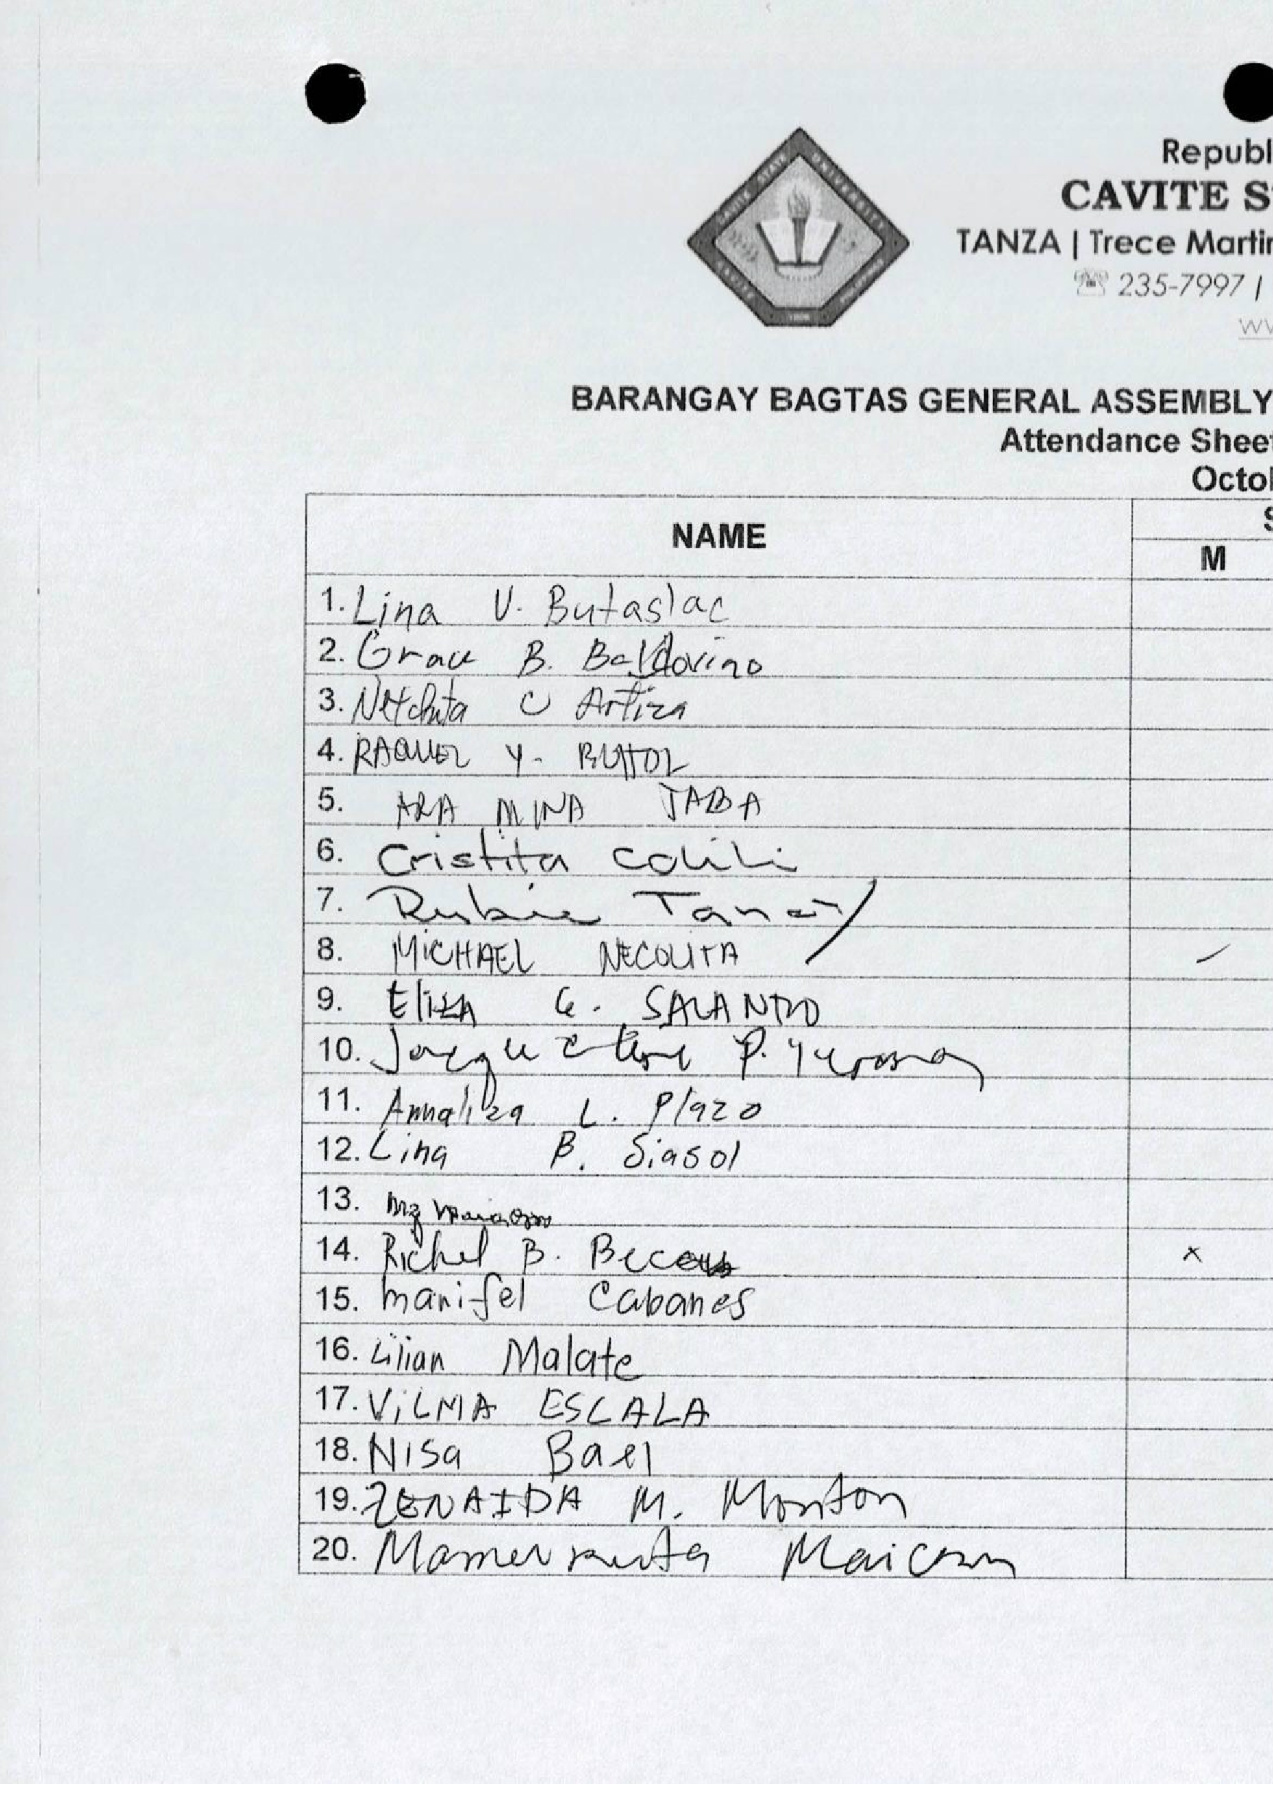 Republ
CAVITE S
TANZA | Trece Martir
235-7997 |
BARANGAY BAGTAS GENERAL ASSEMBLY
Attendance Shee
Octo
NAME
M
1. Lina V. Butaslac
2. Grace B. Baldovino
3. C Artiza
4. RAQUEL Y. BUTTOL
5. ARA MINA JABA
6. Cristita Colili
7. Rubie Tanay
8. MICHAEL NECOLITA
9. Eliza G. SALANTRO
10. Jacqueline P.
11. Annaliza L. Plazo
12. Lina B. Siasol
13.
14. Richel B.
x
15. marifel Cabanes
16. Lilian Malate
17. ViLMA ESCALA
18. Nisa Bael
19. ZENAIDA M. Monton
20.